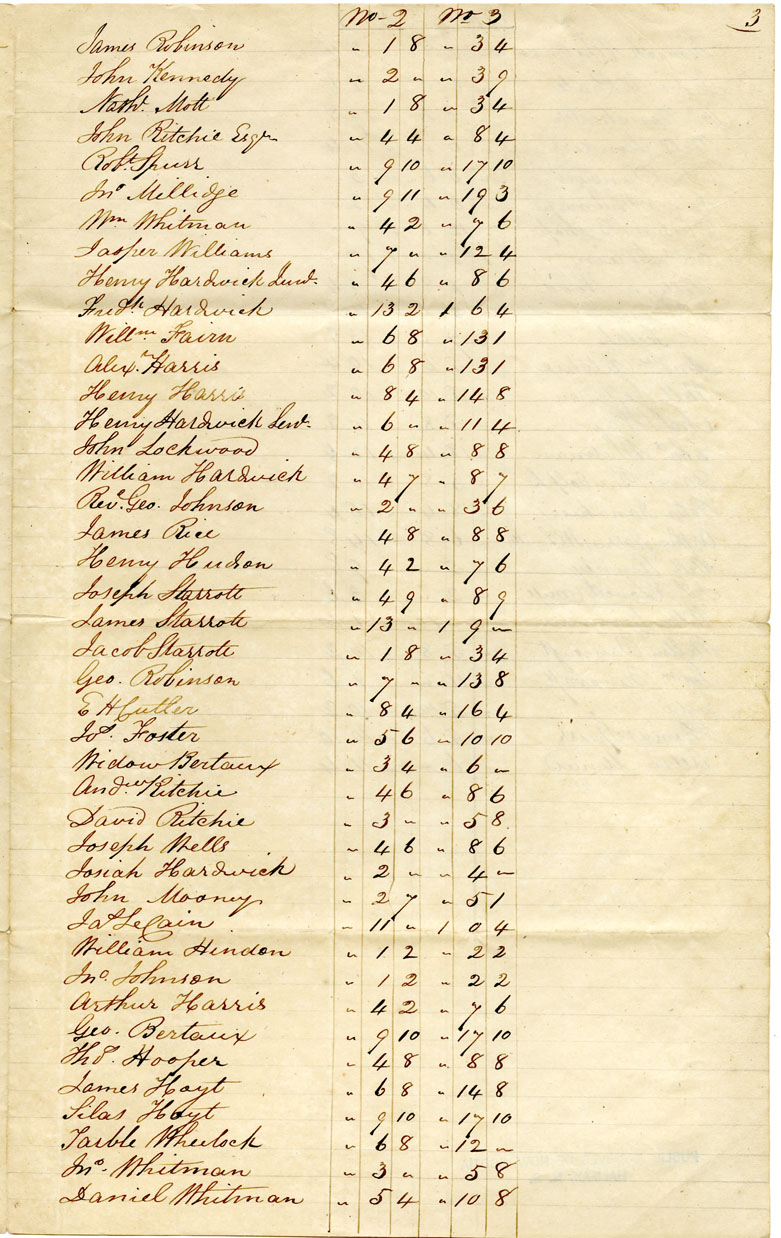 No- 2 No 3 3
James Robinson " 1 8 " 3 4
John Kennedy " 2 " " 3 9
Nathl. Mott " 1 8 " 3 4
John Ritchie Esqr " 4 4 " 8 4
Robt. Spurr " 9 10 " 17 10
Jno Millidge " 9 11 " 19 3
Wm Whitman " 4 2 " 7 6
Jasper Williams " 7 " " 12 4
Henry Hardwick Junr. " 4 6 " 8 6
Fredk Hardwick " 13 2 1 6 4
Willm Fairn " 6 8 " 13 1
Alexr. Harris " 6 8 " 13 1
Henry Harris " 8 4 " 14 8
Henry Hardwick Senr. " 6 " " 11 4
John Lockwood " 4 8 " 8 8
William Hardwick " 4 7 " 8 7
Revd. Geo. Johnson " 2 " " 3 6
James Rice " 4 8 " 8 8
Henry Hudson " 4 2 " 7 6
Joseph Starrott " 4 9 " 8 9
James Starrott " 13 " 1 9 "
Jacob Starrott " 1 8 " 3 4
Geo. Robinson " 7 " " 13 8
E H Cutler " 8 4 " 16 4
Jos. Foster " 5 6 " 10 10
Widow Bertaux " 3 4 " 6 "
Andrew Ritchie " 4 6 " 8 6
David Ritchie " 3 " " 5 8
Joseph Wells " 4 6 " 8 6
Josiah Hardwick " 2 " " 4 "
John Mooney " 2 7 " 5 1
Jas LeCain " 11 " 1 0 4
William Hindon " 1 2 " 2 2
Jno. Johnson " 1 2 " 2 2
Arthur Harris " 4 2 " 7 6
Geo. Bertaux " 9 10 " 17 10
Thos. Hooper " 4 8 " 8 8
James Hoyt " 6 8 " 14 8
Silas Hoyt " 9 10 " 17 10
Tarble Wheelock " 6 8 " 12 "
Jno. Whitman " 3 " " 5 8
Daniel Whitman " 5 4 " 10 8